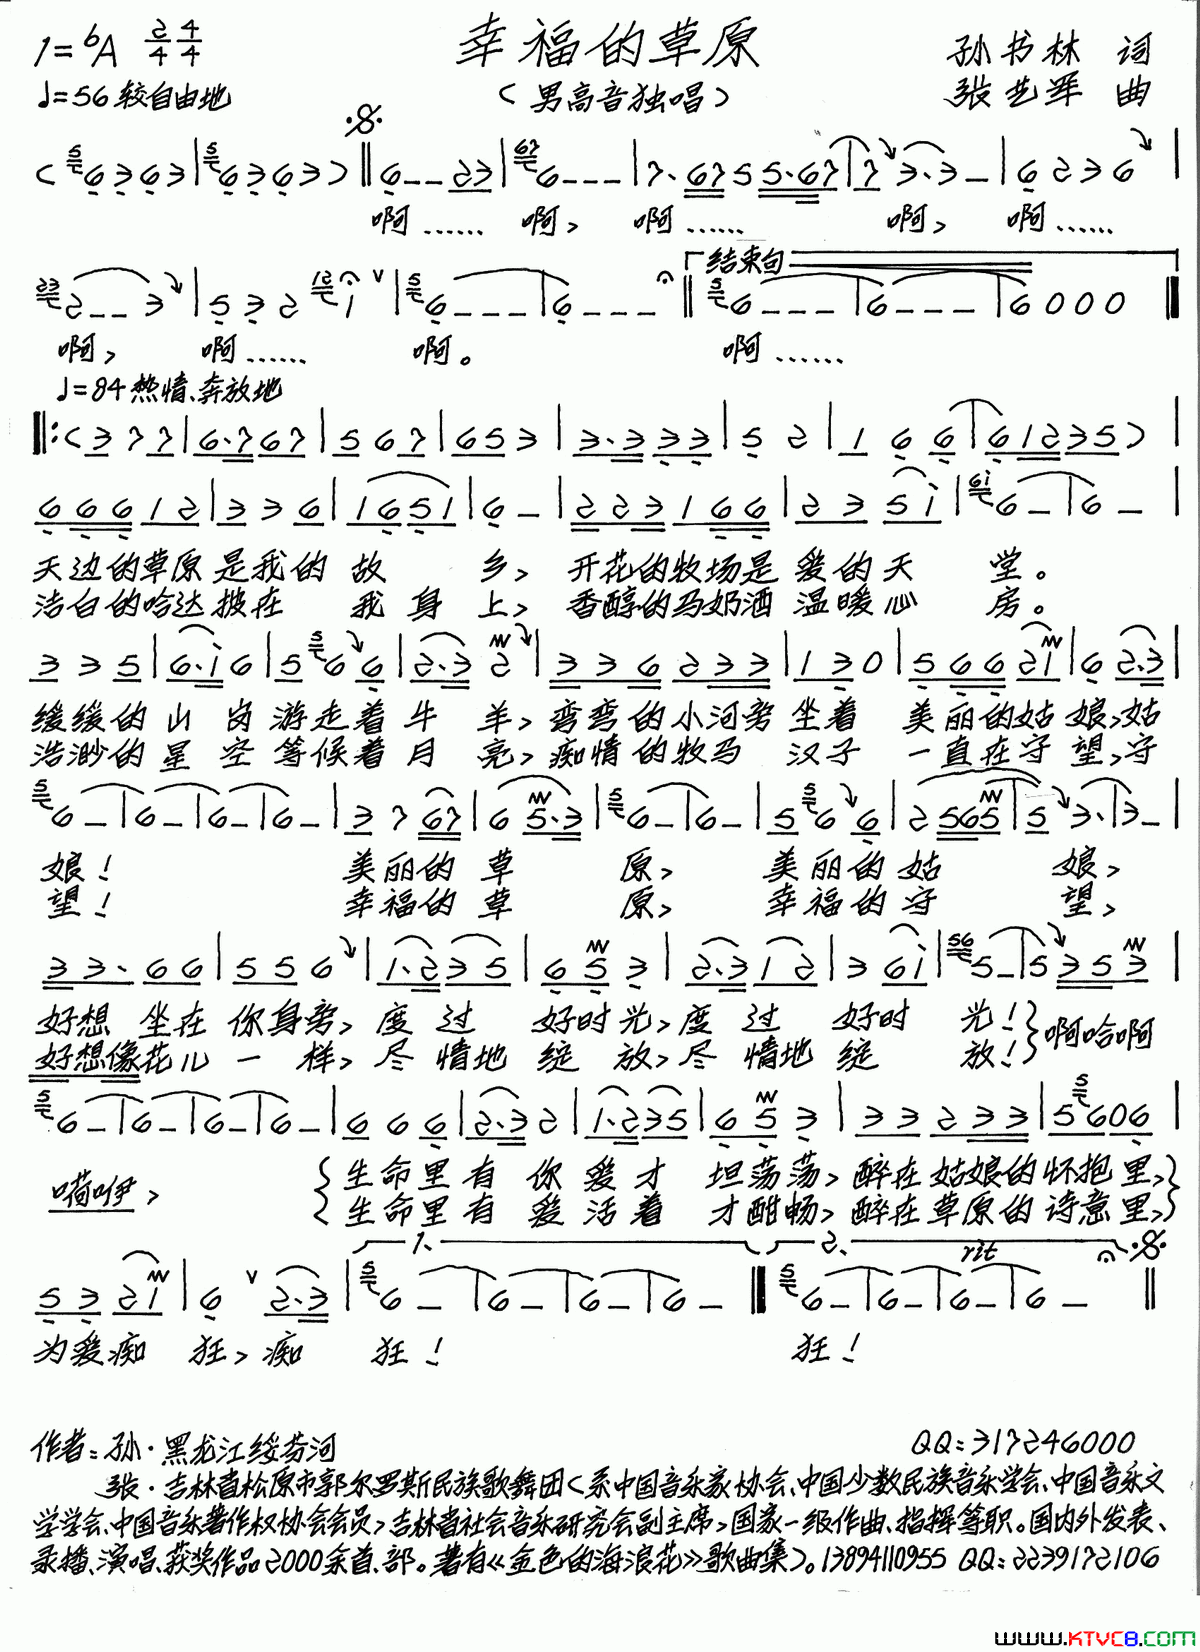 幸福的草原
1=ᵇA 2/4 4/4
孙书林 词
♩=56 较自由地
（男高音独唱）
张艺军 曲
啊…… 啊， 啊…… 啊， 啊……
结束句
啊， 啊…… 啊。 啊……
♩=84 热情、奔放地
天边的草原是我的故 乡， 开花的牧场是爱的天 堂。
洁白的哈达披在 我身上， 香醇的马奶酒温暖心 房。
缓缓的山岗游走着牛 羊，弯弯的小河旁坐着 美丽的姑娘，姑
浩渺的星空等候着月 亮，痴情的牧马 汉子 一直在守望，守
娘！ 美丽的草 原， 美丽的姑 娘，
望！ 幸福的草 原， 幸福的守 望，
好想 坐在你身旁，度过 好时光，度过 好时 光！ 啊哈啊
好想像花儿一样，尽情地绽放，尽情地绽 放！
嗬咿， 生命里有你爱才 坦荡荡，醉在姑娘的怀抱里，
生命里有爱活着 才酣畅，醉在草原的诗意里，
1. 2. rit
为爱痴 狂，痴 狂！ 狂！
作者：孙·黑龙江绥芬河 QQ：317246000
张·吉林省松原市郭尔罗斯民族歌舞团（系中国音乐家协会、中国少数民族音乐学会、中国音乐文
学学会、中国音乐著作权协会会员，吉林省社会音乐研究会副主席，国家一级作曲、指挥等职。国内外发表、
录播、演唱、获奖作品2000余首、部。著有《金色的海浪花》歌曲集）。13894110955 QQ：2239172106
www.KTVC8.com